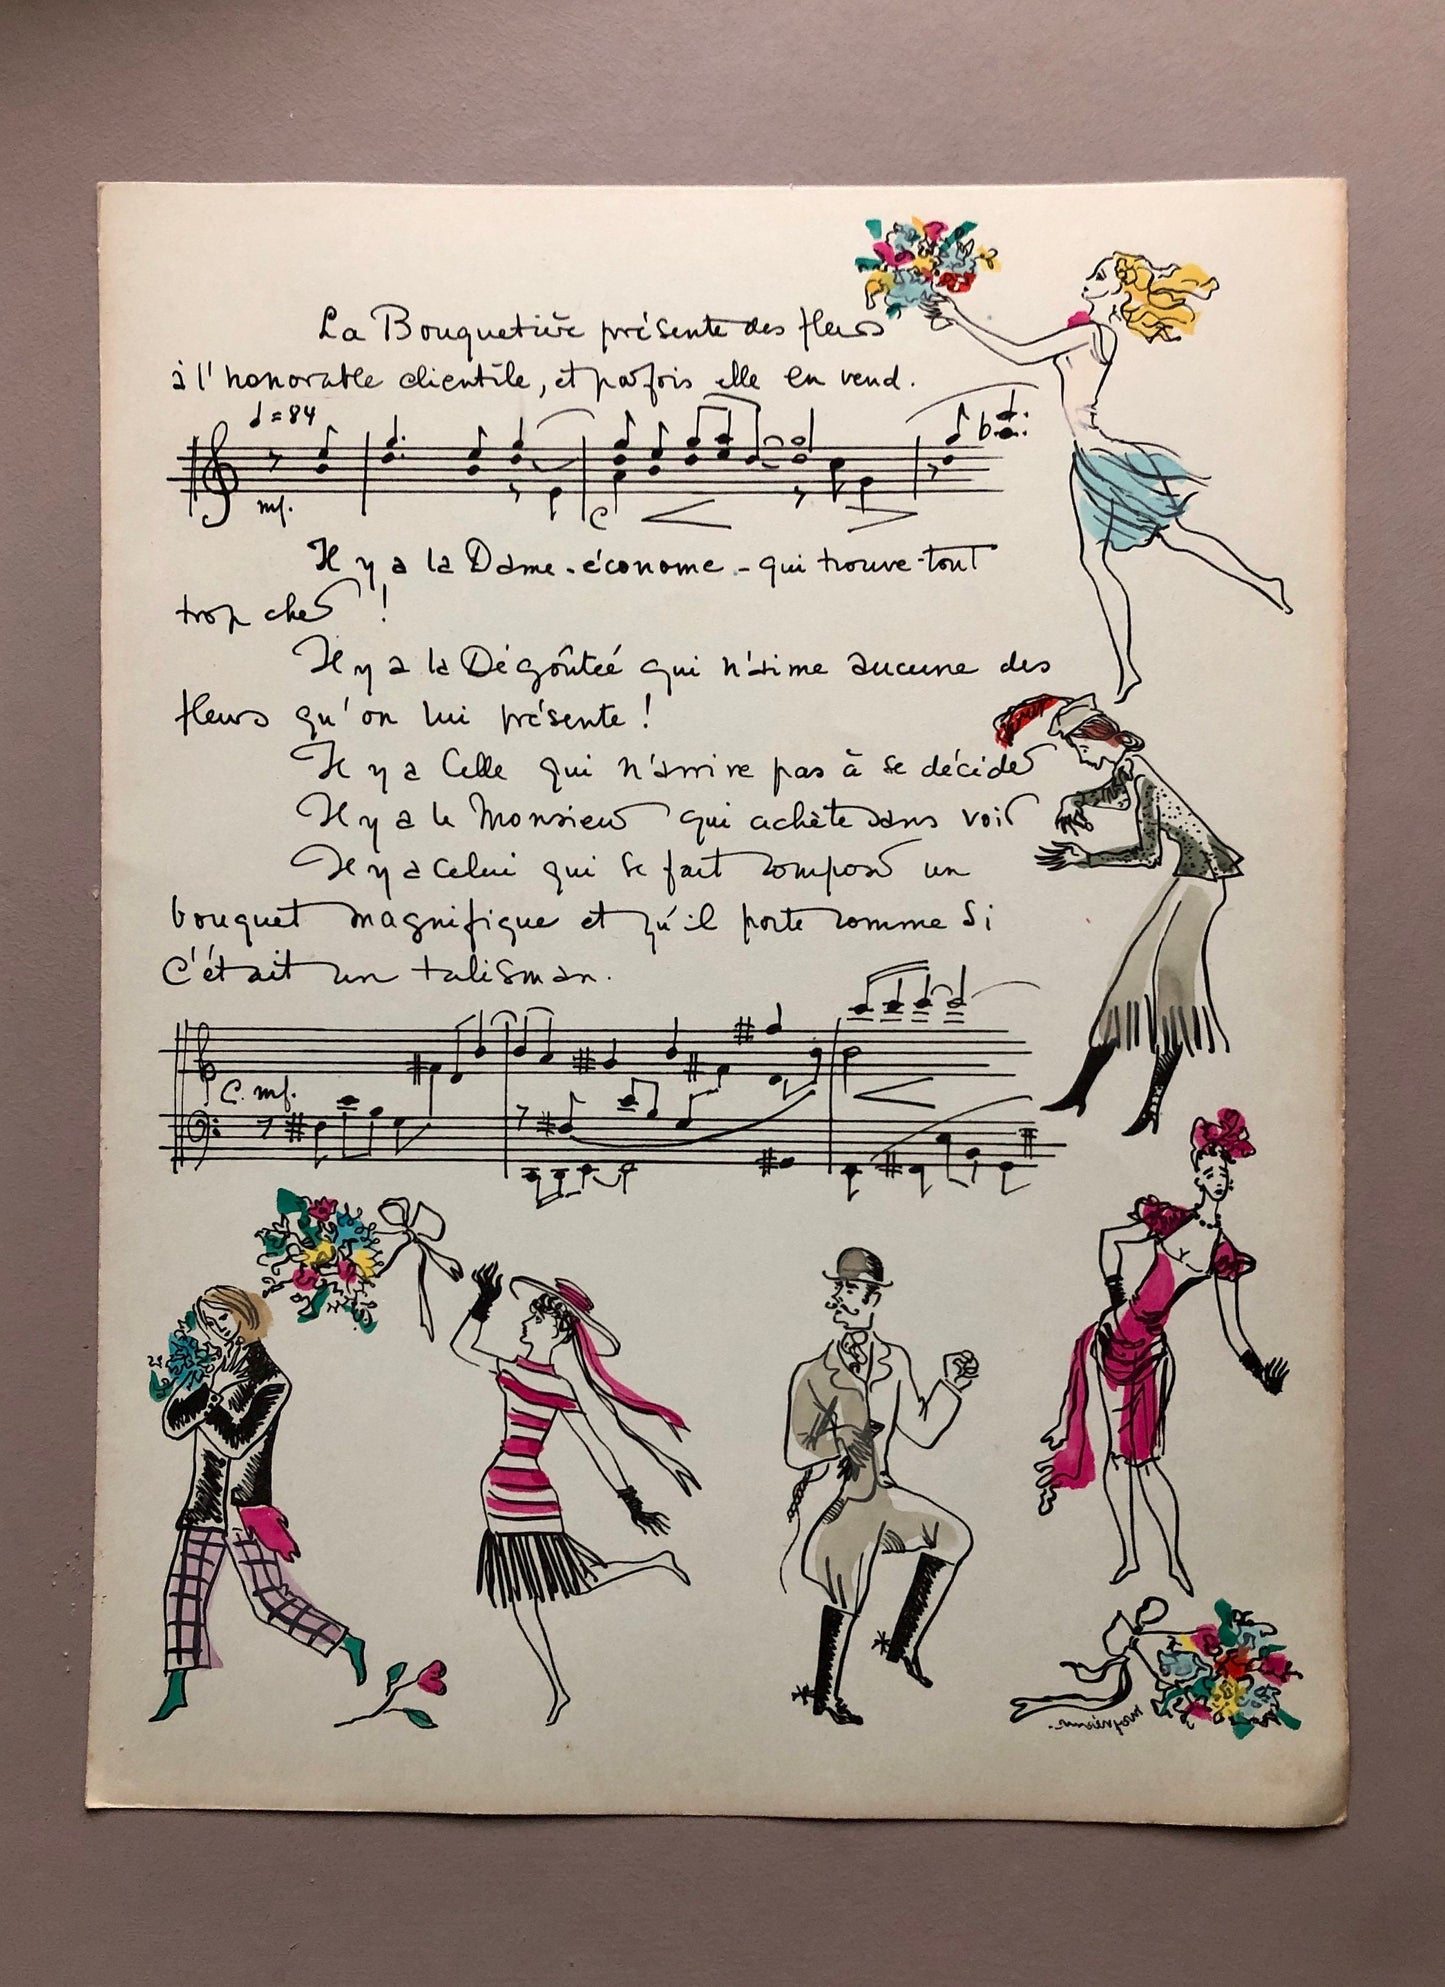 La Bouquetière présente des fleurs
à l'honorable clientèle, et parfois elle en vend.
♩ = 84
mf.
C
Il y a la Dame - économe - qui trouve tout
trop cher !
Il y a la Dégoûtée qui n'aime aucune des
fleurs qu'on lui présente !
Il y a Celle qui n'arrive pas à se décider
Il y a le Monsieur qui achète sans voir
Il y a celui qui se fait composer un
bouquet magnifique et qu'il porte comme si
c'était un talisman.
C. mf.